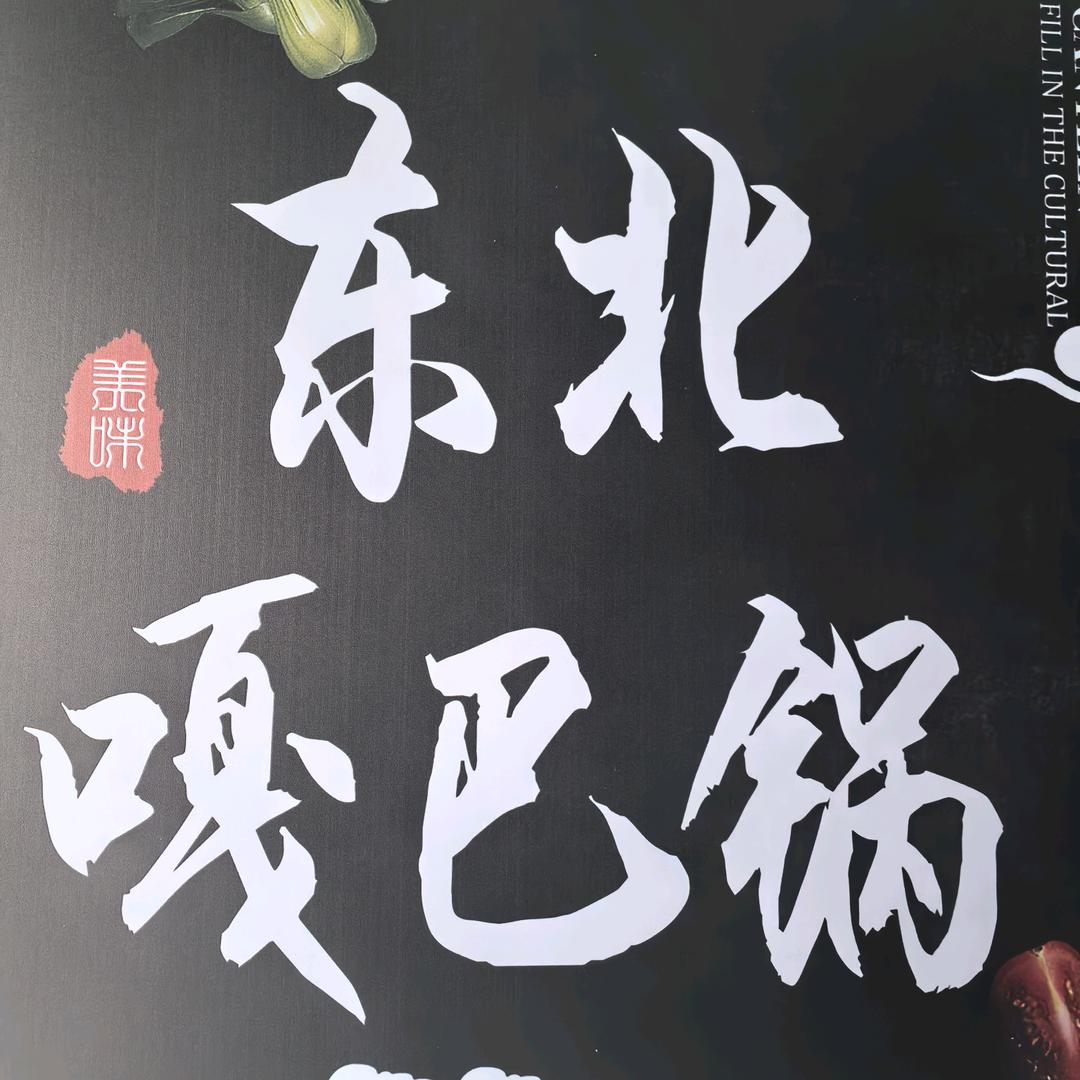 东北
嘎巴锅
美味
FILL IN THE CULTURAL